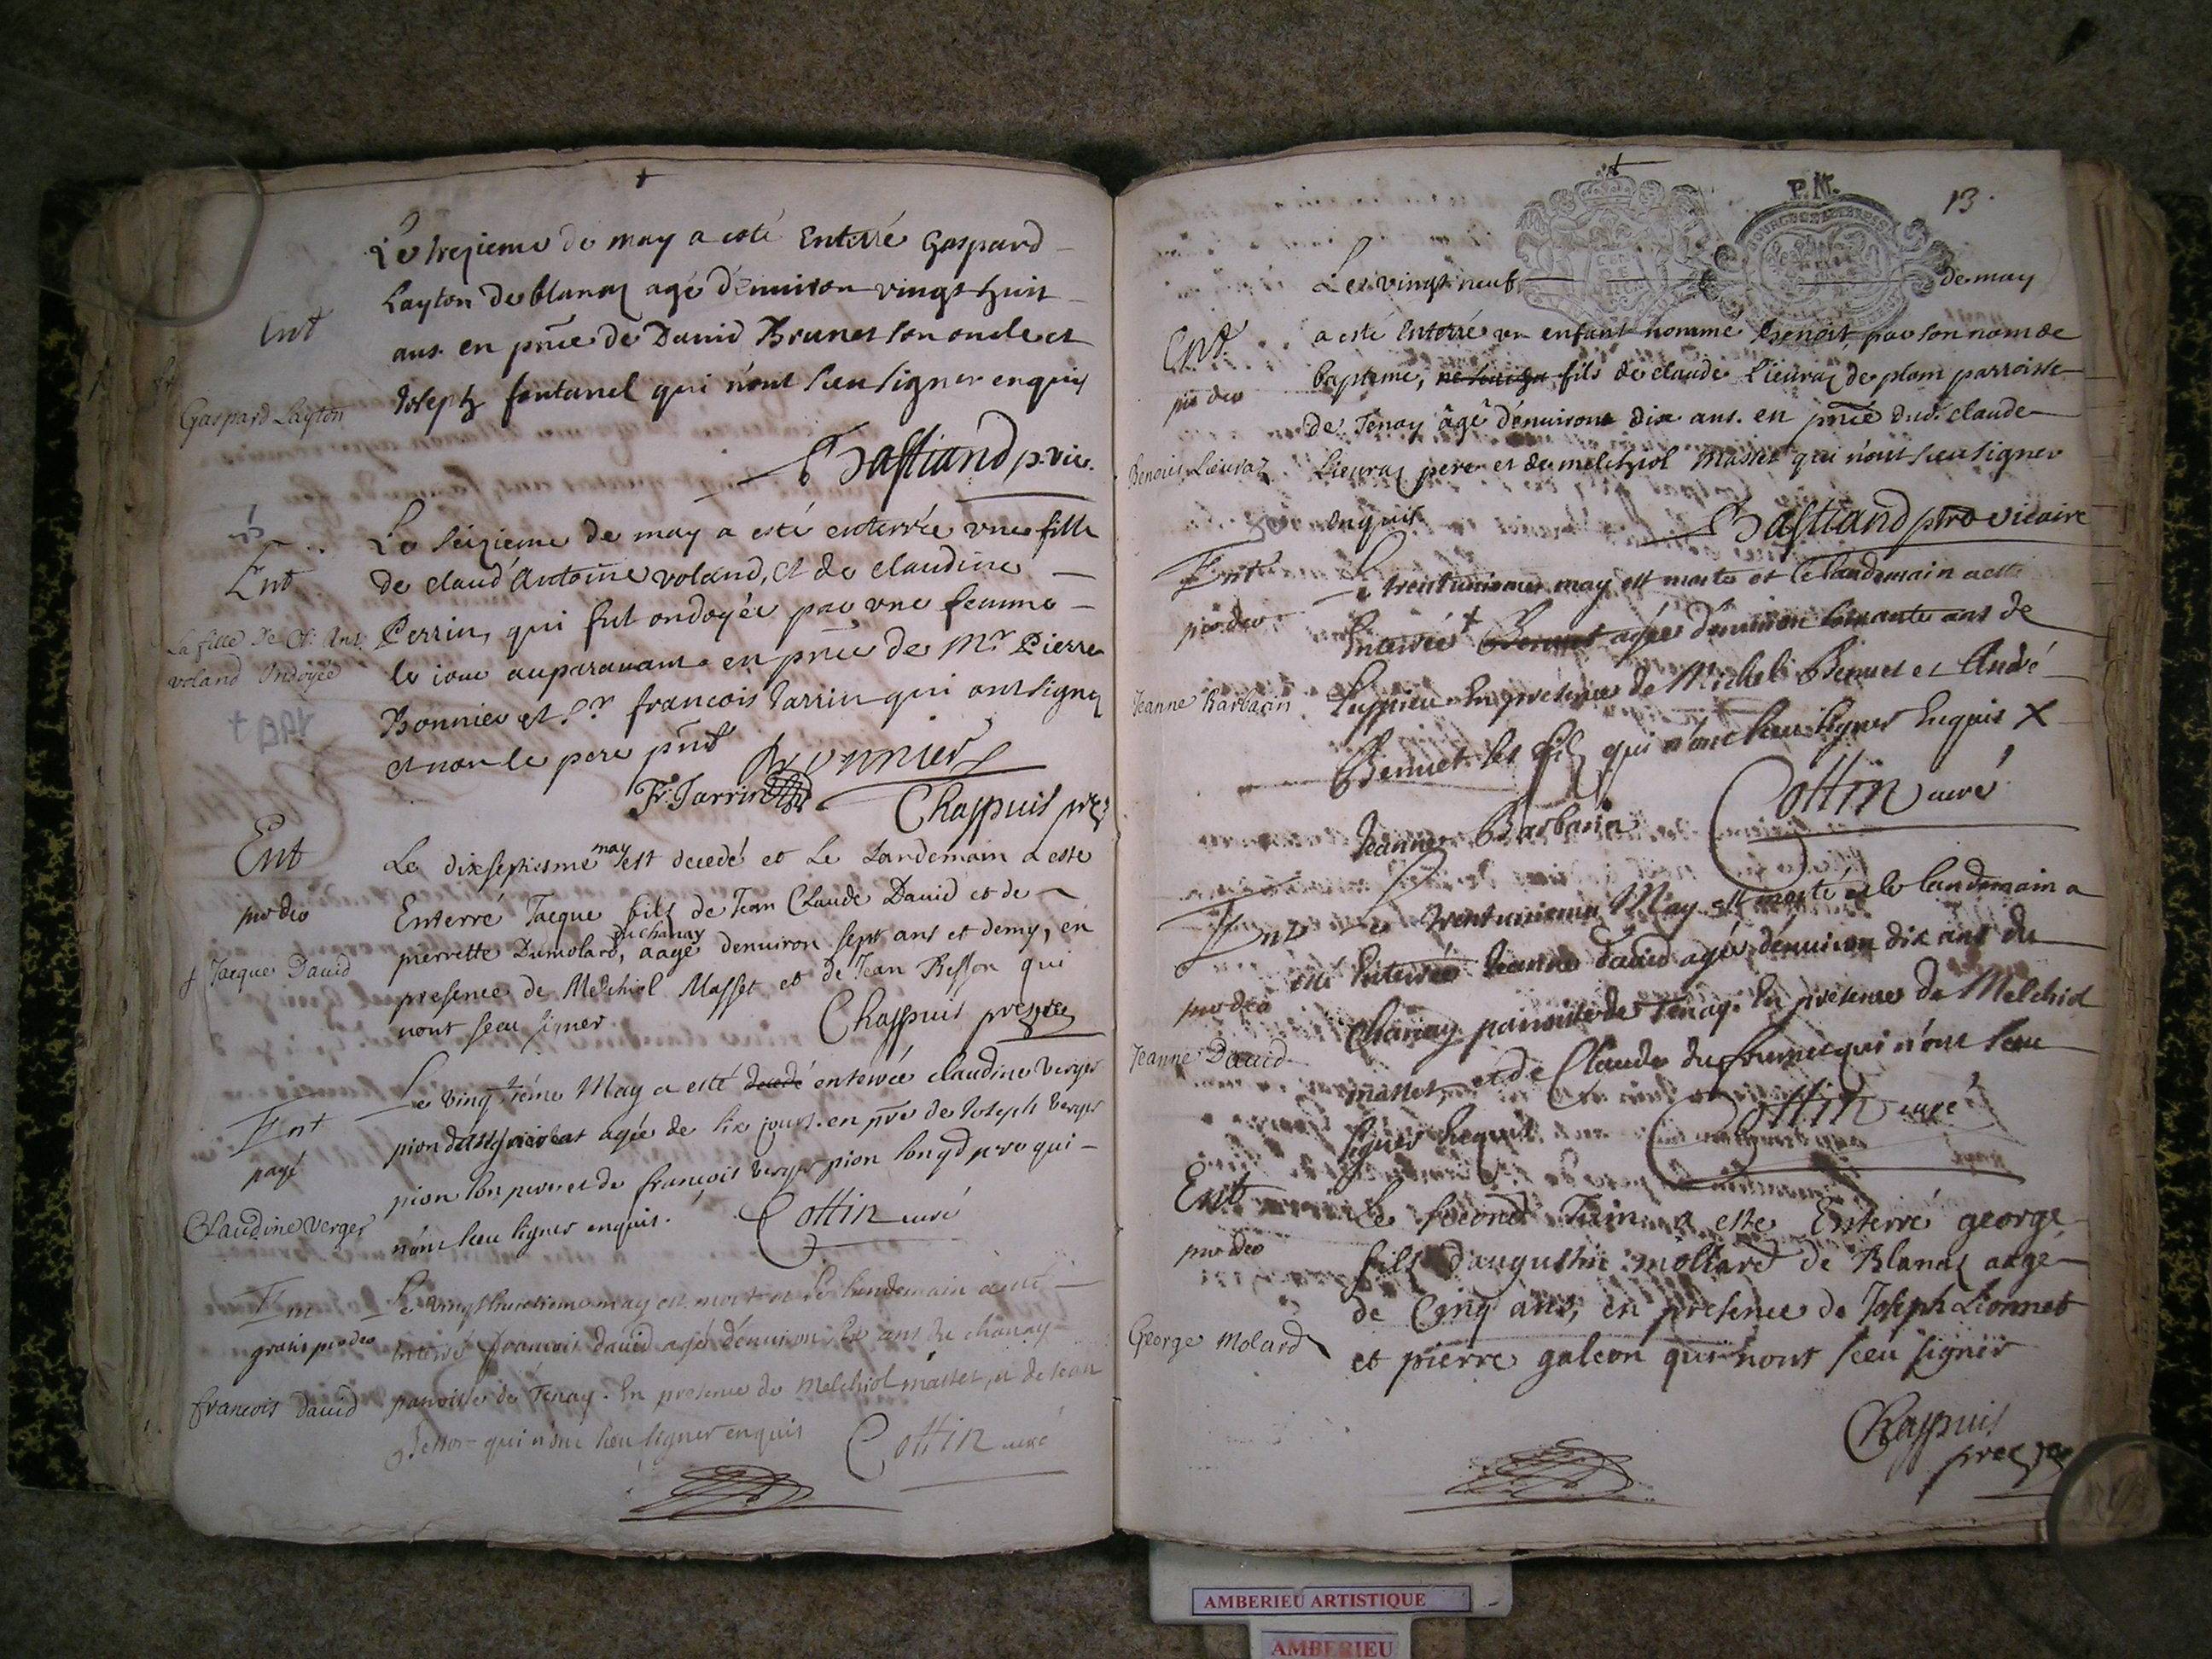 Ent
Gaspard Layton
Le trezieme de may a esté Enterré Gaspard
Layton de blanaz agé d'enuiron vingt huit
ans. en pnce de Dauid Brunet son oncle et
Joseph fontanel qui n'ont sceu signer enquis
Bastiand p. vic.
Ent
La fille De Cl: Ant:
voland Ondoyée
Le seizieme de may a esté enterrée vne fille
de claud' Antoine voland, et de claudine
Perrin, qui fut ondoyée par vne femme
le iour auparauant en pnce de Mr Pierre
Bonnier et Sr francois Jarrin qui ont signez
et non le pere pnt
Bonnier
Fr. Jarrin
Chappuis pre
Ent
pro deo
Jacque Dauid
Le dixseptiesme may est decedé et Le Landemain a esté
Enterré Jacque fils de Jean Claude Dauid et de
du chanay
pierrette Dumolard, aagé denuiron sept ans et demy, en
presence de Melchiol Masset et de Jean Resson qui
nont sceu signer
Chappuis prestre
Ent
payé
Claudine verger
Le vingtiéme May a esté decedé enterrée claudine verger
pion agée de six jours. en pnce de Joseph verger
pion son pere et de françois verger pion son gd pere qui
n'ont sceu signer enquis.
Cottin curé
Ent
gratis pro deo
francois dauid
Le vingthuictieme may est mort et le landemain a esté
Enterré francois dauid agé d'enuiron six ans du chanay
parroisse de Tenay. En presence de Melchiol masset, et de Jean
Besson qui n'ont sceu signer enquis
Cottin curé
P. M.
13.
Ent.
pro deo
Benoit Lieuraz
Le vingt neuf de may
a esté Enterré un enfant nommé Benoit, par son nom de
bapteme, fils de claude Lieuraz de plom parroisse
de Tenay âgé d'enuiron dix ans. en pnce dud. claude
Lieuraz pere et de melchiol Masset qui n'ont sceu signer
enquis
Bastiand ptre vicaire
Ent
pro deo
Jeanne Barbarin
Le trentunieme may est morte et le landemain a esté
Enterrée + Bennet agée d'enuiron soixante ans de
En presence de Michel Bennet et André
Bennet ses fils qui n'ont sceu signer Enquis X
Jeanne Barbarin
Cottin curé
Ent
pro deo
Jeanne Dauid
Le trentunieme May est morte et le landemain a
esté Enterrée Jeanne dauid agée d'enuiron dix ans du
Chanay parroisse de Tenay. En presence de Melchiol
masset, et de Claude du fournet qui n'ont sceu
signer Enquis
Cottin curé
Ent
pro deo
George Molard
Le second Juin a esté Enterré george
fils d'augustin mollard de Blanaz aagé
de Cinq ans, en presence de Joseph Lionnet
et pierre galeon qui nont sceu signer
Chappuis
prestre
AMBERIEU ARTISTIQUE
AMBERIEU